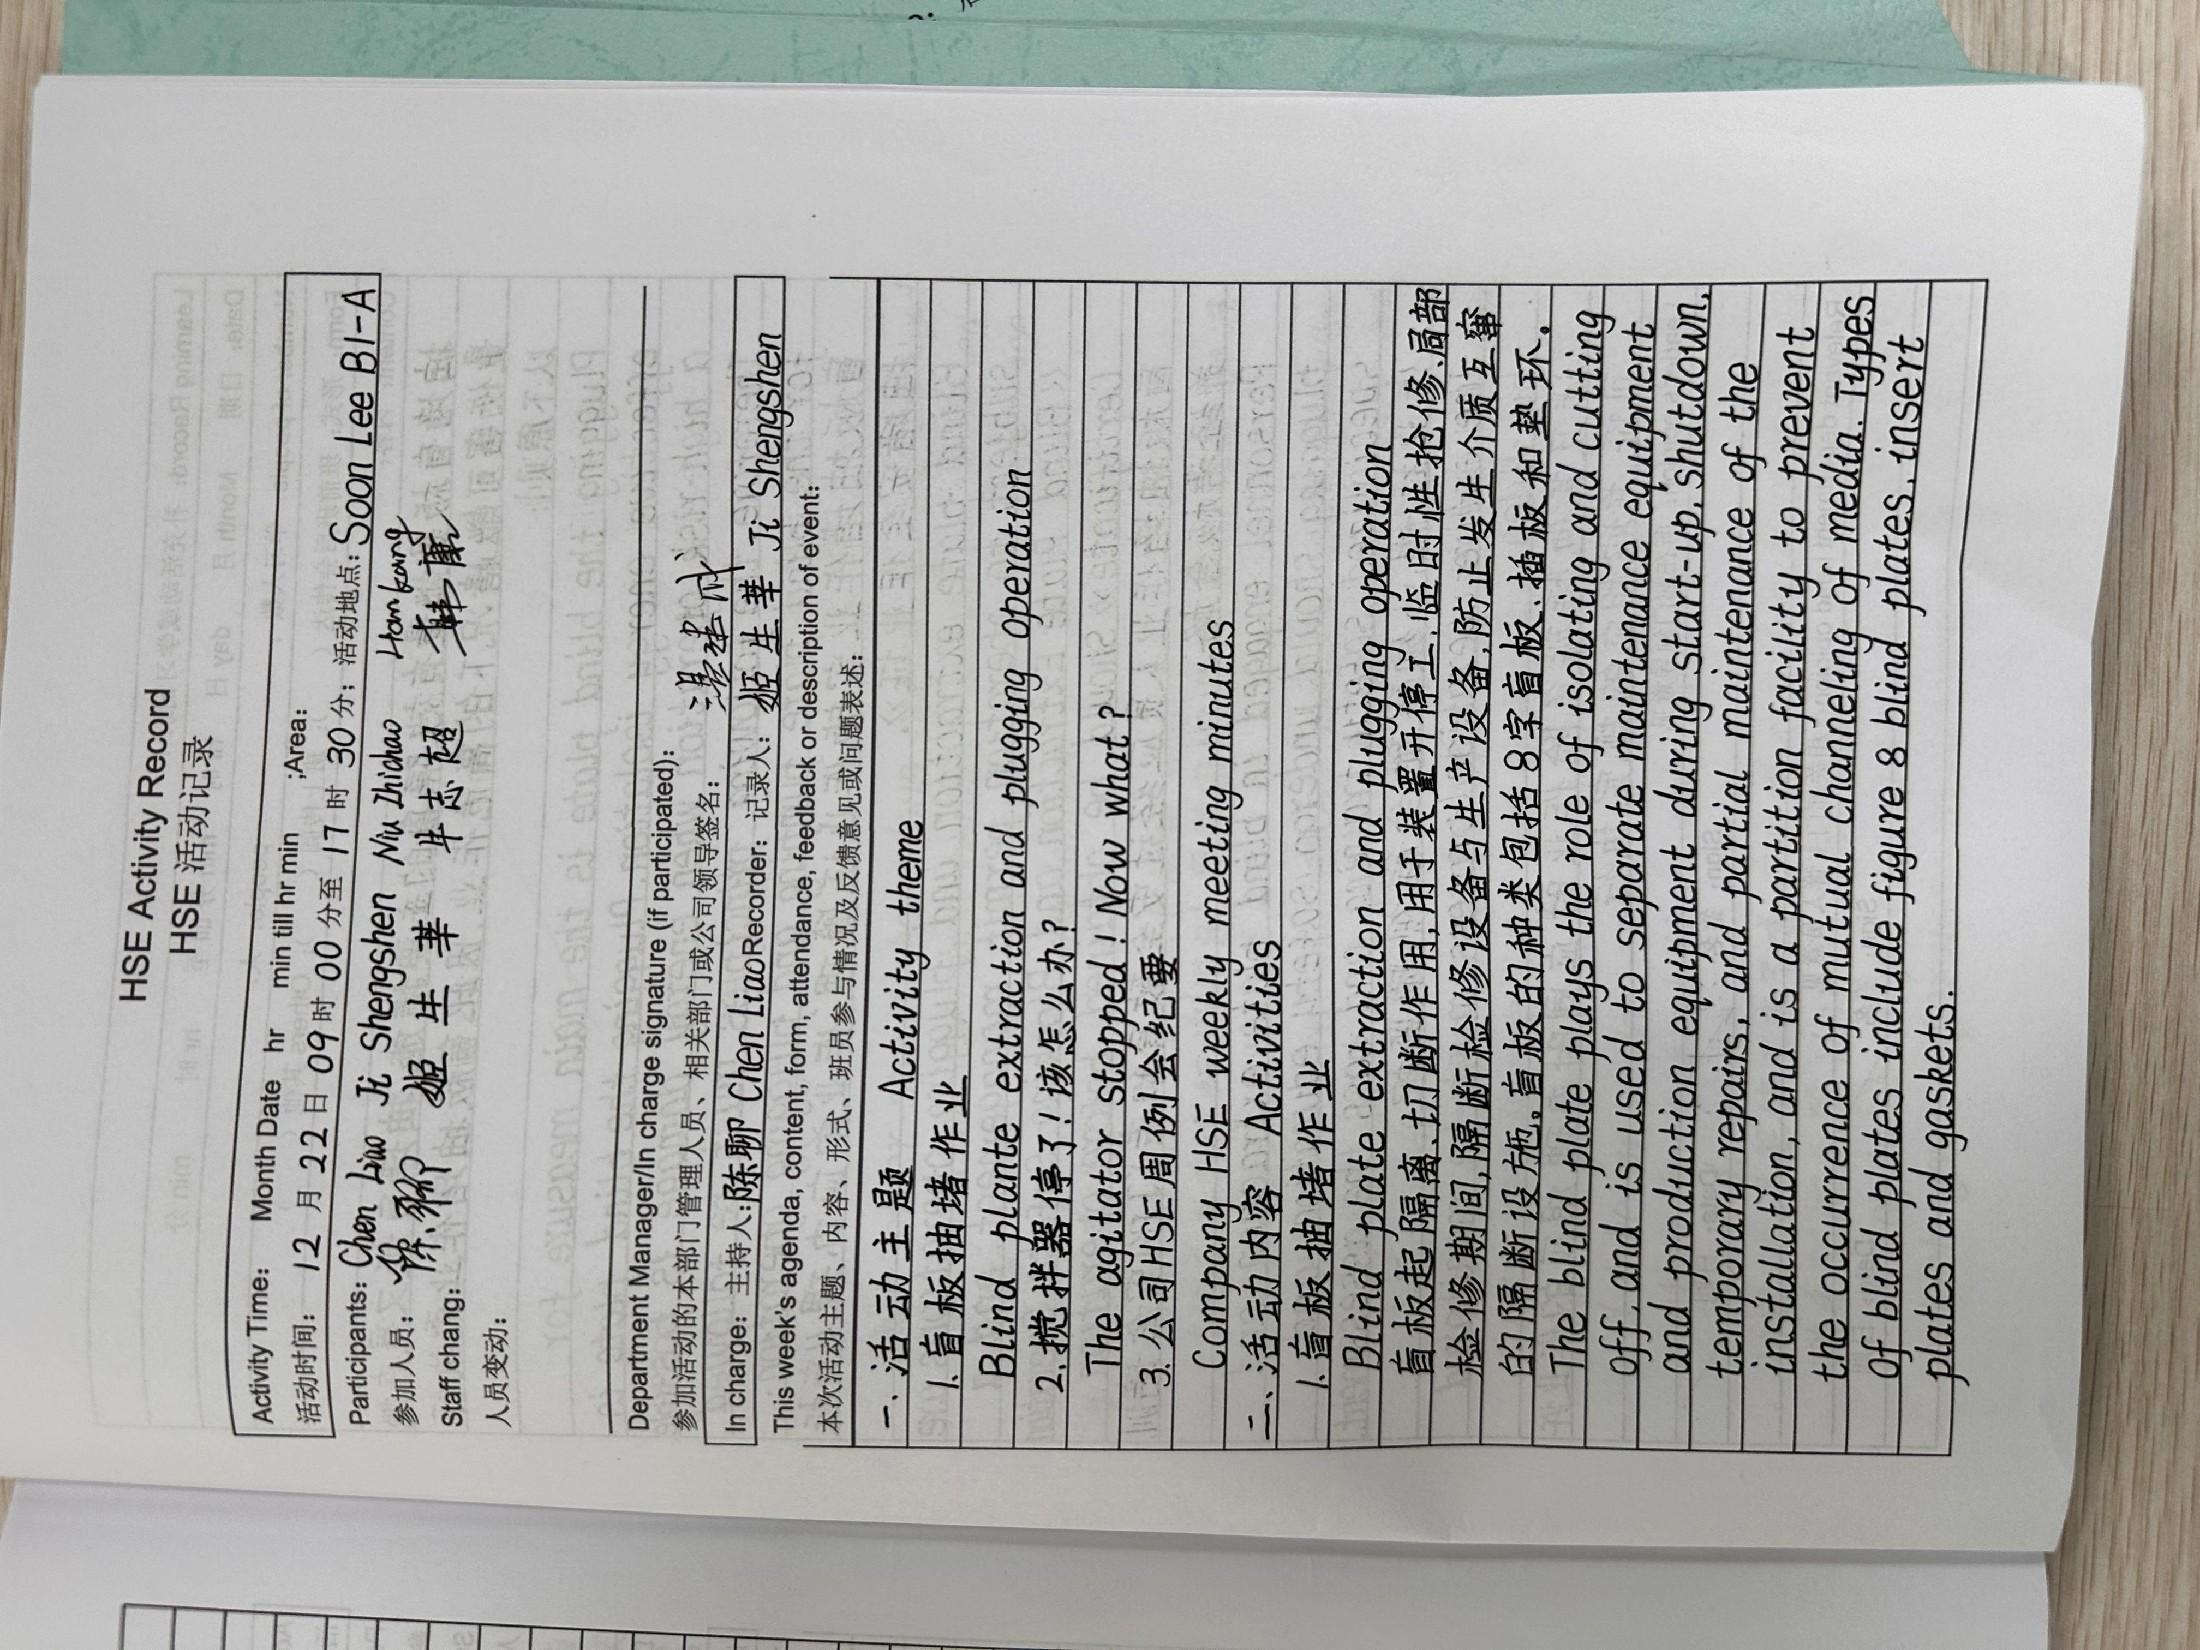 HSE Activity Record
HSE 活动记录
Activity Time: Month Date hr min till hr min ;Area:
活动时间: 12 月 22 日 09 时 00 分至 17 时 30 分; 活动地点: Soon Lee B1-A
Participants: Chen Liao Ji Shengshen Niu Zhichao Han kang
参加人员: 陈聊 姬生華 牛志超 韩康
Staff chang:
人员变动:
Department Manager/In charge signature (if participated):
参加活动的本部门管理人员、相关部门或公司领导签名:
In charge: 主持人: 陈聊 Chen Liao Recorder: 记录人: 姬生華 Ji Shengshen
This week's agenda, content, form, attendance, feedback or description of event:
本次活动主题、内容、形式、班员参与情况及反馈意见或问题表述:
一、活动主题 Activity theme
1. 盲板抽堵作业
Blind plante extraction and plugging operation
2. 搅拌器停了!该怎么办?
The agitator stopped! Now what?
3. 公司HSE周例会纪要
Company HSE weekly meeting minutes
二、活动内容 Activities
1. 盲板抽堵作业
Blind plate extraction and plugging operation
盲板起隔离、切断作用,用于装置开停工、临时性抢修、局部
检修期间,隔断检修设备与生产设备,防止发生介质互窜
的隔断设施。盲板的种类包括8字盲板、插板和垫环.
The blind plate plays the role of isolating and cutting
off, and is used to separate maintenance equipment
and production equipment during start-up, shutdown,
temporary repairs, and partial maintenance of the
installation, and is a partition facility to prevent
the occurrence of mutual channeling of media. Types
of blind plates include figure 8 blind plates, insert
plates and gaskets.